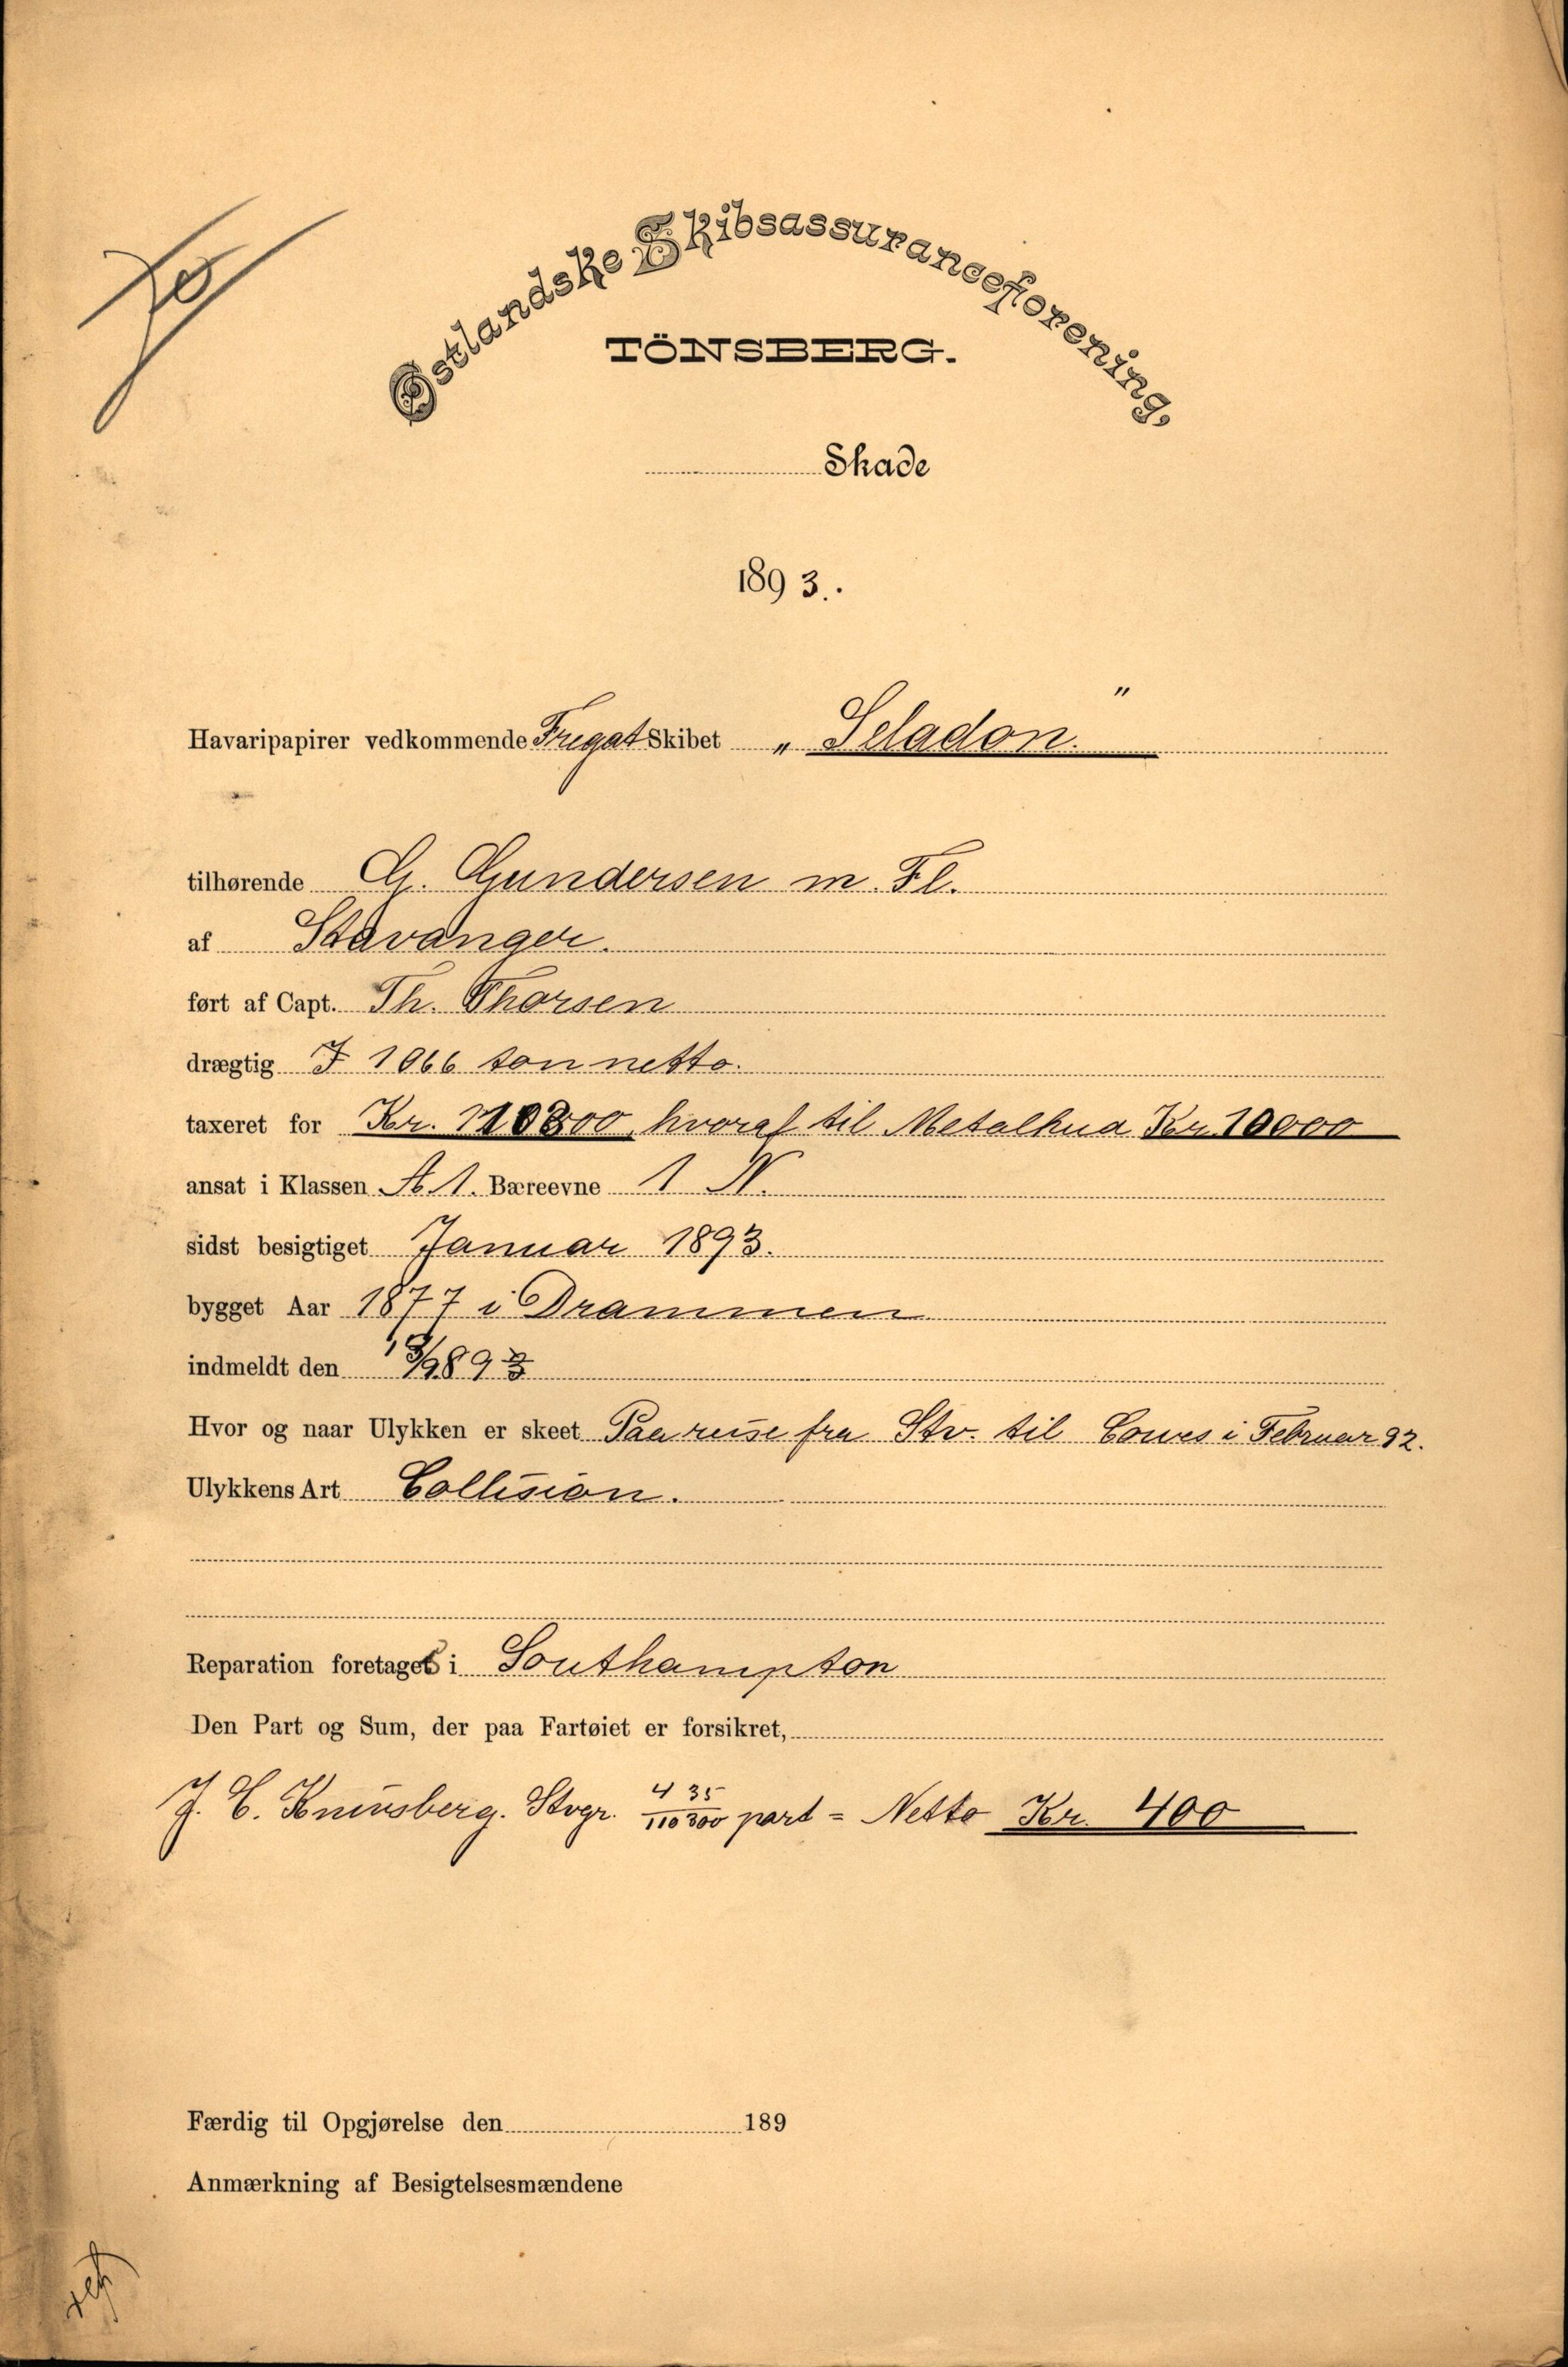 Østlandske Skibsassuranceforening,
TÖNSBERG.
Skade
1893.
Havaripapirer vedkommende Fregat Skibet „Seladon."
tilhørende G. Gundersen m. Fl.
af Stavanger.
ført af Capt. Th. Thorsen
drægtig 1066 ton netto.
taxeret for Kr. hvoraf til Metalhud Kr. 10000
ansat i Klassen A. 1. Bæreevne 1 N.
sidst besigtiget Januar 1893.
bygget Aar 1877 i Drammen
indmeldt den
Hvor og naar Ulykken er skeet Paa reise fra Stv. til Cowes i Februar 92.
Ulykkens Art Collision.
Reparation foretaget i Southampton
Den Part og Sum, der paa Fartøiet er forsikret,
Stvgr. 435/110300 part = Netto Kr. 400
Færdig til Opgjørelse den 189
Anmærkning af Besigtelsesmændene